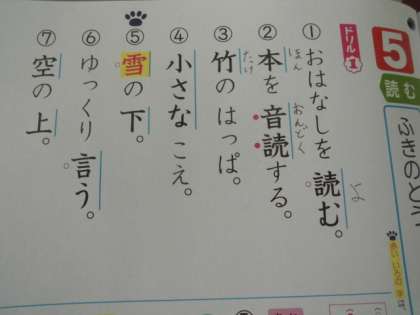 5
読む
ふきのとう
ドリル1
① おはなしを読む。
よ
② 本を音読する。
ほん
おんどく
③ 竹のはっぱ。
たけ
④ 小さなこえ。
⑤ 雪の下。
⑥ ゆっくり言う。
⑦ 空の上。